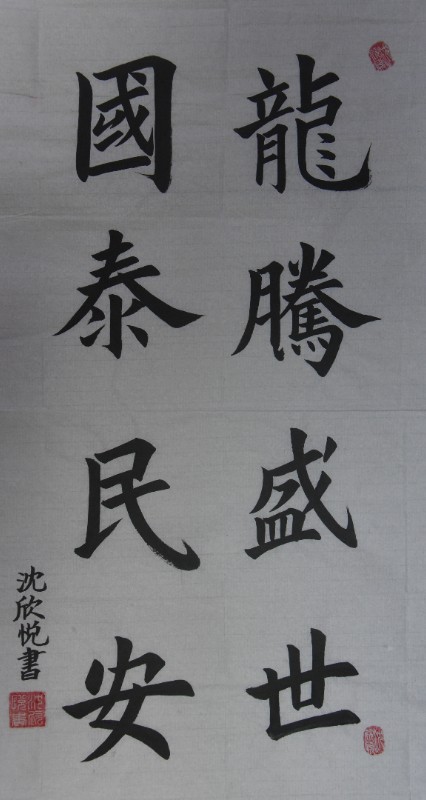 龍騰盛世
國泰民安
沈欣悦書